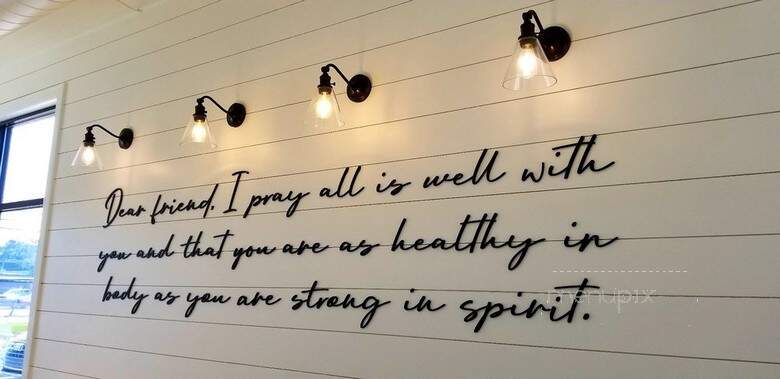 Dear friend, I pray all is well with
you and that you are as healthy in
body as you are strong in spirit.
menupix